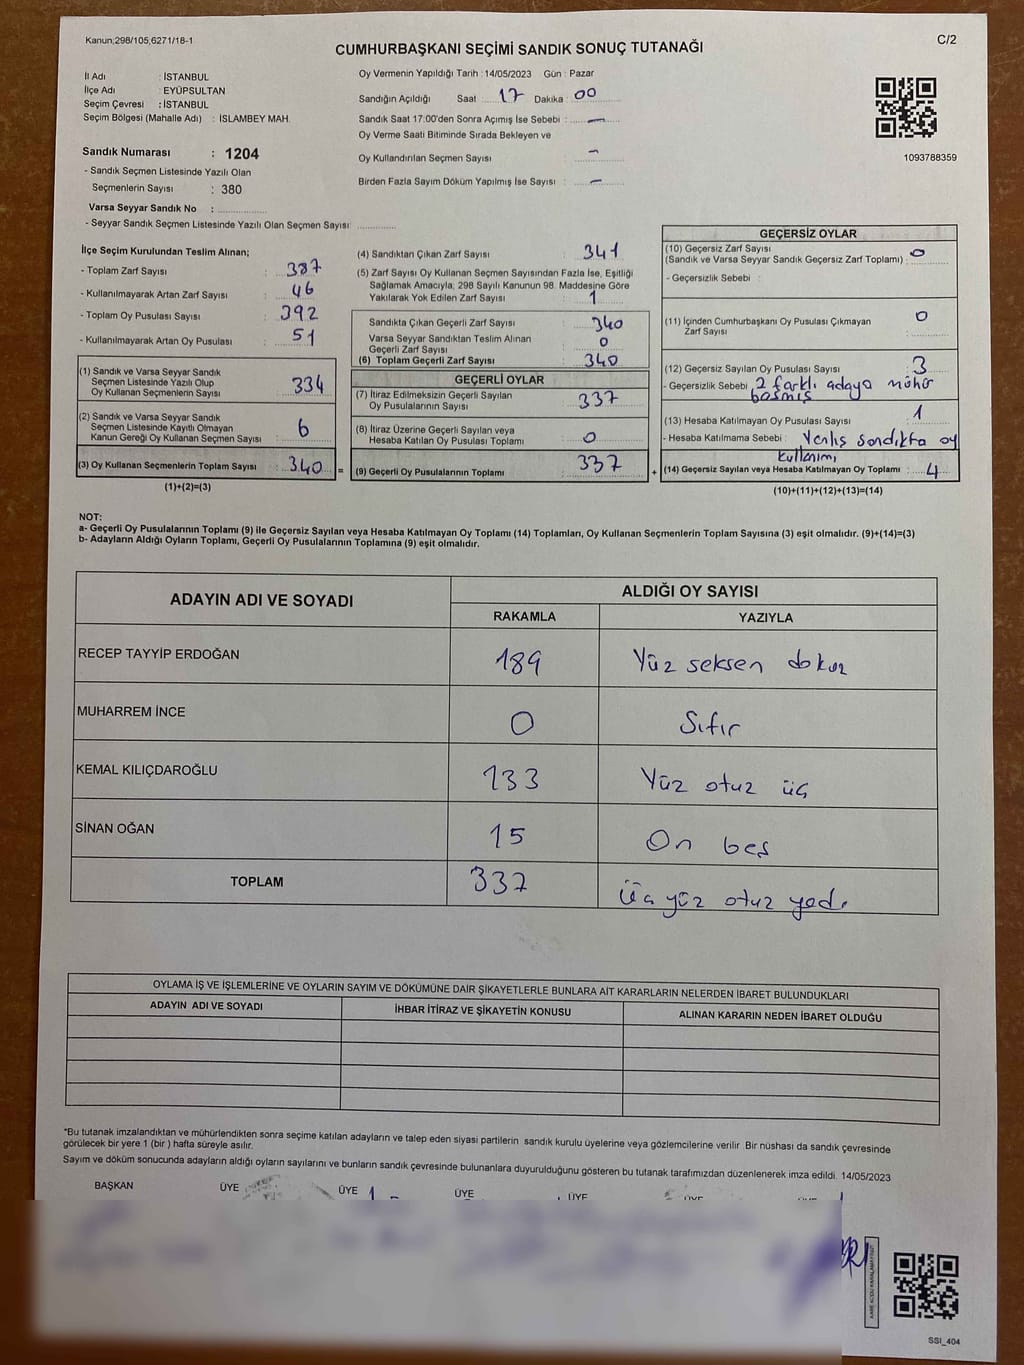 Kanun,298/105,6271/18-1
C/2
CUMHURBAŞKANI SEÇİMİ SANDIK SONUÇ TUTANAĞI
İl Adı : İSTANBUL
İlçe Adı : EYÜPSULTAN
Seçim Çevresi : İSTANBUL
Seçim Bölgesi (Mahalle Adı) : İSLAMBEY MAH.
Sandık Numarası : 1204
- Sandık Seçmen Listesinde Yazılı Olan
Seçmenlerin Sayısı : 380
Varsa Seyyar Sandık No :
- Seyyar Sandık Seçmen Listesinde Yazılı Olan Seçmen Sayısı:
Oy Vermenin Yapıldığı Tarih : 14/05/2023 Gün : Pazar
Sandığın Açıldığı Saat : 17 Dakika : 00
Sandık Saat 17:00'den Sonra Açımış İse Sebebi : -
Oy Verme Saati Bitiminde Sırada Bekleyen ve
Oy Kullandırılan Seçmen Sayısı : -
Birden Fazla Sayım Döküm Yapılmış İse Sayısı : -
1093788359
İlçe Seçim Kurulundan Teslim Alınan;
- Toplam Zarf Sayısı : 387
- Kullanılmayarak Artan Zarf Sayısı : 46
- Toplam Oy Pusulası Sayısı : 392
- Kullanılmayarak Artan Oy Pusulası : 51
(1) Sandık ve Varsa Seyyar Sandık
Seçmen Listesinde Yazılı Olup
Oy Kullanan Seçmenlerin Sayısı : 334
(2) Sandık ve Varsa Seyyar Sandık
Seçmen Listesinde Kayıtlı Olmayan
Kanun Gereği Oy Kullanan Seçmen Sayısı : 6
(3) Oy Kullanan Seçmenlerin Toplam Sayısı : 340 =
(1)+(2)=(3)
(4) Sandıktan Çıkan Zarf Sayısı : 341
(5) Zarf Sayısı Oy Kullanan Seçmen Sayısından Fazla İse, Eşitliği
Sağlamak Amacıyla, 298 Sayılı Kanunun 98. Maddesine Göre
Yakılarak Yok Edilen Zarf Sayısı : 1
Sandıkta Çıkan Geçerli Zarf Sayısı : 340
Varsa Seyyar Sandıktan Teslim Alınan
Geçerli Zarf Sayısı : 0
(6) Toplam Geçerli Zarf Sayısı : 340
GEÇERLİ OYLAR
(7) İtiraz Edilmeksizin Geçerli Sayılan
Oy Pusulalarının Sayısı : 337
(8) İtiraz Üzerine Geçerli Sayılan veya
Hesaba Katılan Oy Pusulası Toplamı : 0
(9) Geçerli Oy Pusulalarının Toplamı : 337 +
GEÇERSİZ OYLAR
(10) Geçersiz Zarf Sayısı
(Sandık ve Varsa Seyyar Sandık Geçersiz Zarf Toplamı) : 0
- Geçersizlik Sebebi :
(11) İçinden Cumhurbaşkanı Oy Pusulası Çıkmayan
Zarf Sayısı : 0
(12) Geçersiz Sayılan Oy Pusulası Sayısı : 3
- Geçersizlik Sebebi : 2 farklı adaya mühür
basmış
(13) Hesaba Katılmayan Oy Pusulası Sayısı : 1
- Hesaba Katılmama Sebebi : Yanlış sandıkta oy
kullanımı
(14) Geçersiz Sayılan veya Hesaba Katılmayan Oy Toplamı : 4
(10)+(11)+(12)+(13)=(14)
NOT:
a- Geçerli Oy Pusulalarının Toplamı (9) ile Geçersiz Sayılan veya Hesaba Katılmayan Oy Toplamı (14) Toplamları, Oy Kullanan Seçmenlerin Toplam Sayısına (3) eşit olmalıdır. (9)+(14)=(3)
b- Adayların Aldığı Oyların Toplamı, Geçerli Oy Pusulalarının Toplamına (9) eşit olmalıdır.
ADAYIN ADI VE SOYADI
ALDIĞI OY SAYISI
RAKAMLA YAZIYLA
RECEP TAYYİP ERDOĞAN 189 Yüz seksen dokuz
MUHARREM İNCE 0 Sıfır
KEMAL KILIÇDAROĞLU 133 Yüz otuz üç
SİNAN OĞAN 15 On beş
TOPLAM 337 Üç yüz otuz yedi
OYLAMA İŞ VE İŞLEMLERİNE VE OYLARIN SAYIM VE DÖKÜMÜNE DAİR ŞİKAYETLERLE BUNLARA AİT KARARLARIN NELERDEN İBARET BULUNDUKLARI
ADAYIN ADI VE SOYADI İHBAR İTİRAZ VE ŞİKAYETİN KONUSU ALINAN KARARIN NEDEN İBARET OLDUĞU
*Bu tutanak imzalandıktan ve mühürlendikten sonra seçime katılan adayların ve talep eden siyasi partilerin sandık kurulu üyelerine veya gözlemcilerine verilir. Bir nüshası da sandık çevresinde
görülecek bir yere 1 (bir ) hafta süreyle asılır.
Sayım ve döküm sonucunda adayların aldığı oyların sayılarını ve bunların sandık çevresinde bulunanlara duyurulduğunu gösteren bu tutanak tarafımızdan düzenlenerek imza edildi. 14/05/2023
BAŞKAN ÜYE ÜYE ÜYE ÜYE
SSI_404